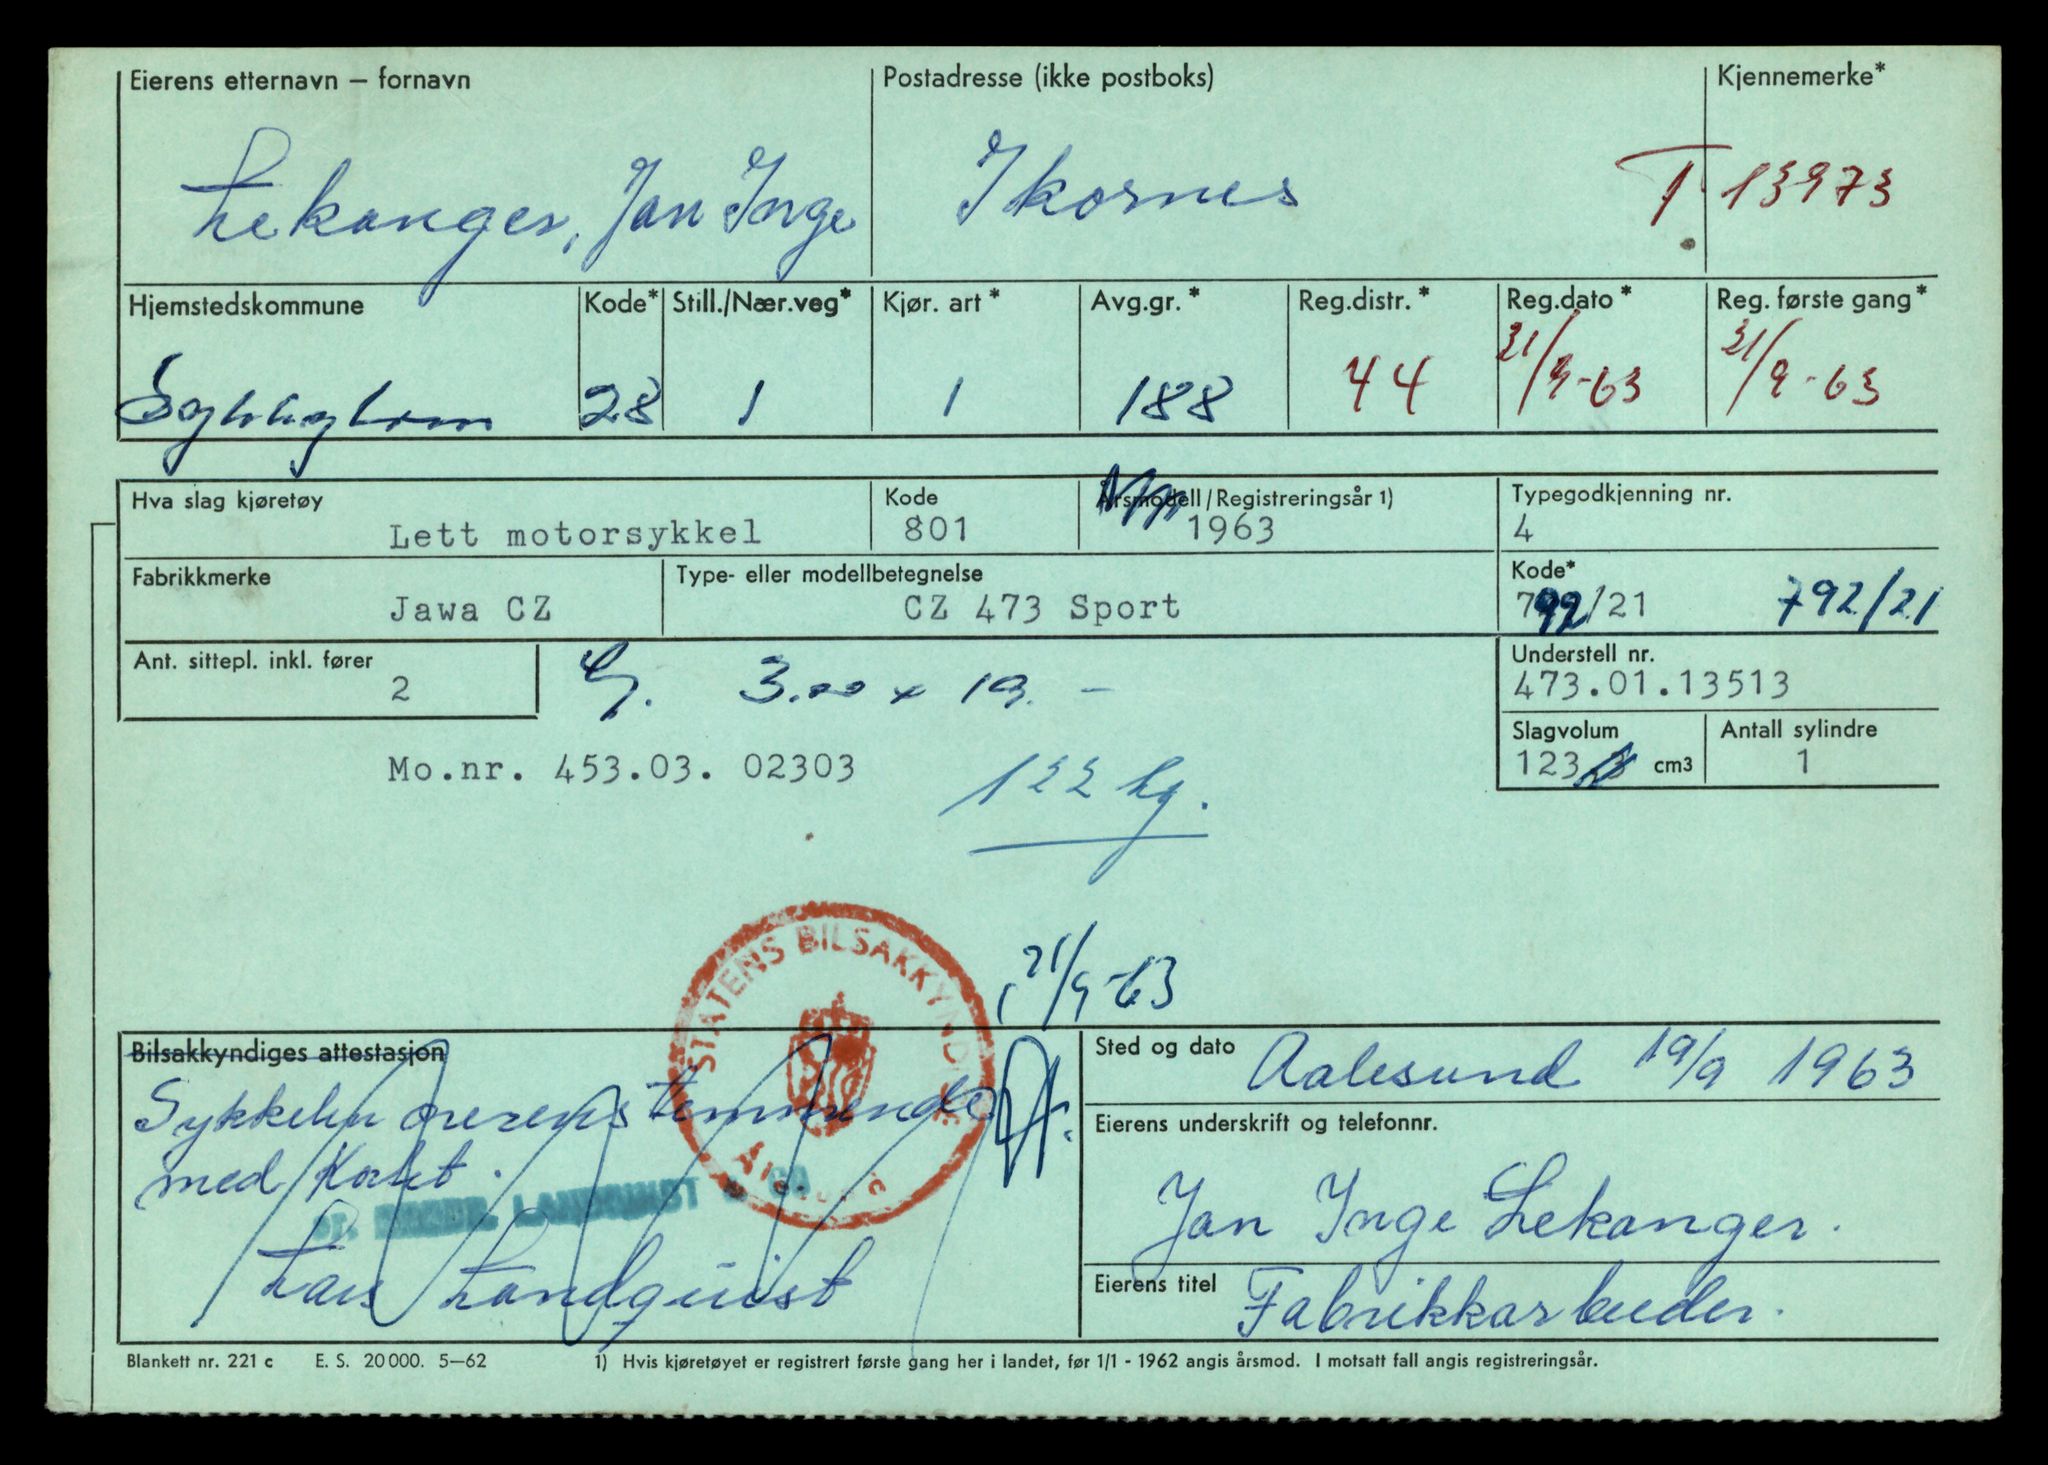 Eierens etternavn – fornavn
Postadresse (ikke postboks)
Kjennemerke*
Lekanger, Jan Inge
Ikornes
T 13973
Hjemstedskommune
Kode*
Still./Nær.veg*
Kjør. art*
Avg.gr.*
Reg.distr.*
Reg.dato*
Reg. første gang*
Sykkylven
28
1
1
188
44
21/9-63
21/9-63
Hva slag kjøretøy
Lett motorsykkel
Kode
801
Årsmodell/Registreringsår 1)
1963
Typegodkjenning nr.
4
Fabrikkmerke
Jawa CZ
Type- eller modellbetegnelse
CZ 473 Sport
Kode*
792/21 792/21
Ant. sittepl. inkl. fører
2
3.00 x 19. –
Understell nr.
473.01.13513
Slagvolum
123 cm3
Antall sylindre
1
Mo.nr. 453.03. 02303
122 kg.
STATENS BILSAKKYNDIGE
21/9-63
Bilsakkyndiges attestasjon
Sykkelen overenstemmende
med Kortet.
Lars Landquist
Sted og dato
Aalesund 19/9 1963
Eierens underskrift og telefonnr.
Jan Inge Lekanger.
Eierens titel
Fabrikkarbeider.
Blankett nr. 221 c E. S. 20000. 5–62
1) Hvis kjøretøyet er registrert første gang her i landet, før 1/1 - 1962 angis årsmod. I motsatt fall angis registreringsår.